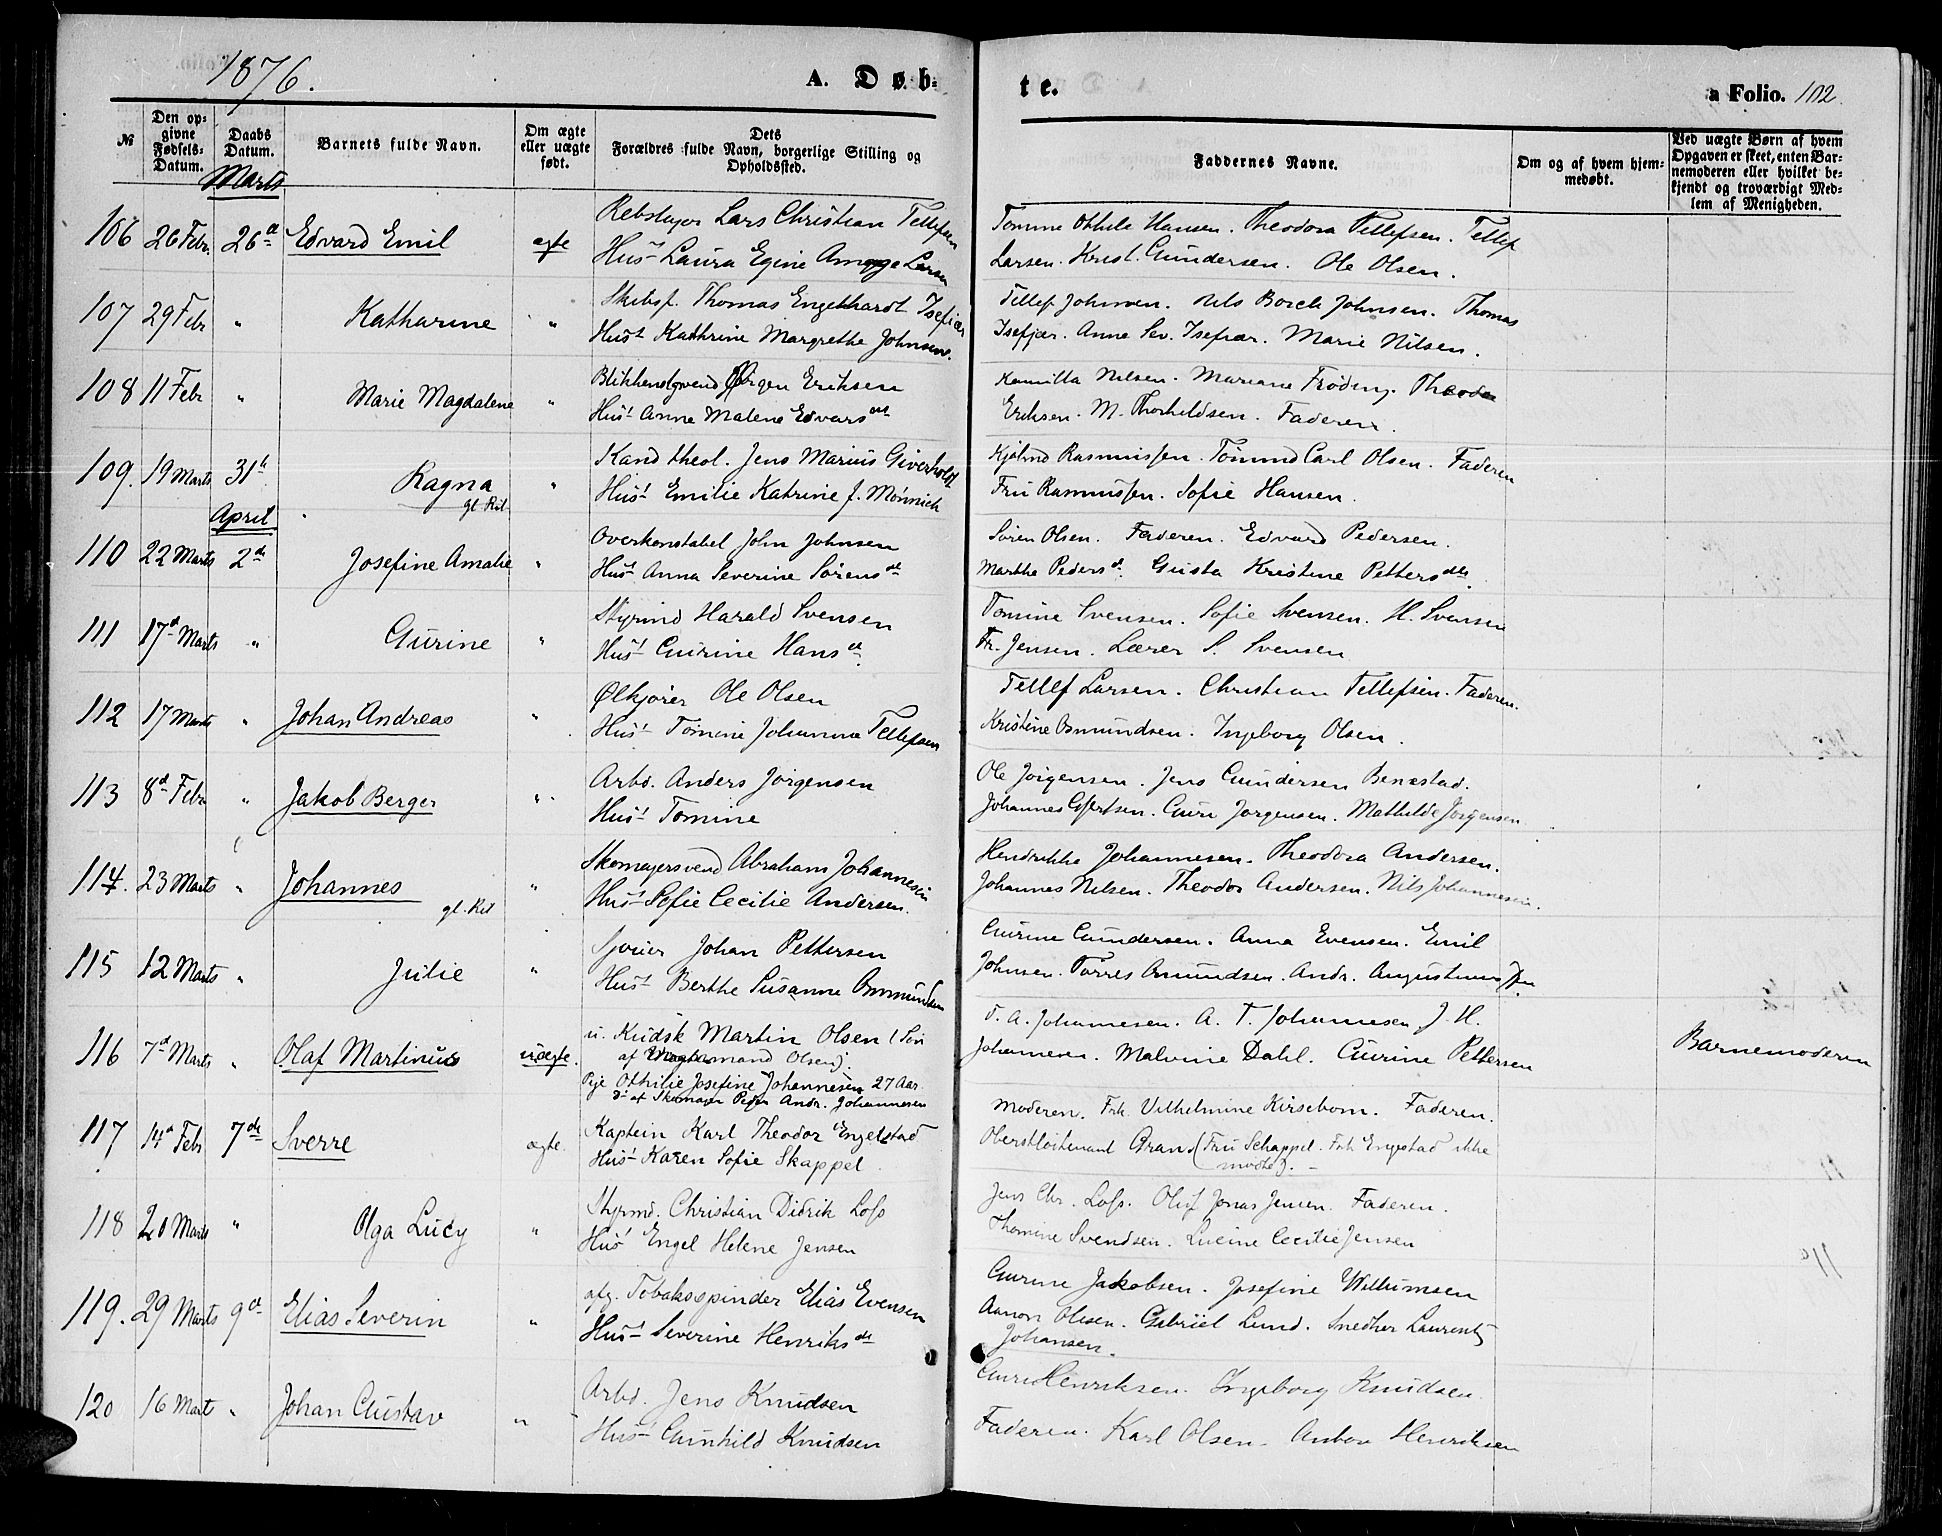 1876.
A. Døb-
te.
a Folio. 102.
№
Den op-
givne
Fødsels-
Datum.
Daabs
Datum.
Barnets fulde Navn.
Om ægte
eller uægte
født.
Dets
Forældres fulde Navn, borgerlige Stilling og
Opholdssted.
Faddernes Navne.
Om og af hvem hjem-
medøbt.
Ved uægte Børn af hvem
Opgaven er skeet, enten Bar-
nemoderen eller hvilket be-
kjendt og troværdigt Med-
lem af Menigheden.
Marts
106 26 Febr. 26de Edvard Emil ægte
Rebslager Lars Christian Tellefsen
Hust Laura Egine Larsen
Tomine Othile Hansen. Theodora Tellefsen. Tellef
Larsen. Krist. Gundersen. Ole Olsen.
107 29 Febr " Katharine "
Skibsf. Thomas Engelhardt Isefiær
Hust Kathrine Margrethe Johnsen.
Tellef Johnsen. Nils Borch Johnsen. Thomas
Isefjær. Anne Sev. Isefiær. Marie Nilsen.
108 11 Febr " Marie Magdalene "
Jørgen Eriksen
Hust Anne Malene Edvarsdt
Kamilla Nilsen. Mariane Frøding. Theodor
Eriksen. M. Thorkildsen. Faderen.
109. 19 Marts 31te Ragna "
gl. Rit
Kand theol. Jens Marius Giverholt
Hust Emilie Katrine f. Mønnich
Hjalmd Rasmussen. Carl Olsen. Faderen
Fru Rasmussen. Sofie Hansen.
April
110 22 Marts 2de Josefine Amalie "
Overkonstabel John Johnsen
Hust Anna Severine Sørensdt
Søren Olsen. Faderen. Edvard Pedersen.
Marthe Pedersd. Gusta Kristine Pettersdtr.
111 17d Marts " Gurine "
Styrmd Harald Svensen
Hust Gurine Hansdt.
Tomine Svensen. Sofie Svensen. H. Svensen
Fr. Jensen. Lærer S. Svensen
112 17 Marts " Johan Andreas "
Ølkjører Ole Olsen
Hust Tomine Johanne Tellefsen
Tellef Larsen. Christian Tellefsen. Faderen.
Kristine Osmundsen. Ingeborg Olsen.
113 8d Febr " Jakob Berger "
Arbd. Anders Jørgensen
Hust Tomine
Ole Jørgensen. Jens Gundersen Benestad.
Johannes Guri Jørgensen. Mathilde Jørgensen
114. 23 Marts " Johannes "
gl. Rit
Skomagersvend Abraham Johannesen
Hust Sofie Cecilie Andersen.
Hendrikke Johannesen. Theodora Andersen.
Johannes Nilsen. Theodor Andersen. Nils Johannesen.
115 12 Marts " Julie "
Johan Pettersen
Hust Berthe Susanne Osmundsen
Gurine Gundersen. Anna Evensen. Emil
Johnsen. Tarres Osmundsen. Andr. Augustinussen.
116 7d Marts " Olaf Martinus uægte.
u. Kudsk Martin Olsen (Søn
af Olsen).
Pige Othilie Josefine Johannesen 27 Aar
Dt af Skomager Peder Andr. Johannesen
T. A. Johannesen. A. T. Johannesen J. H.
Johannesen. Malvine Dahl. Gurine Pettersen
Barnemoderen
117 14d Febr 7de Sverre ægte.
Kaptein Karl Theodor Engelstad
Hust Karen Sofie Skappel
Moderen. Frk. Vilhelmine Kirsebom. Faderen.
Oberstløitenant Grand (Fru Schappel. Frk Engestad ikke
mødte).
118 20 Marts " Olga Lucy "
Styrmd. Christian Didrik Loss
Hust Engel Helene Jensen
Jens Chr. Loss. Oluf Jonas Jensen. Faderen.
Thomine Svendsen. Lucine Cecilie Jensen
119. 29 Marts 9de Elias Severin "
afg. Tobaksspinder Elias Evensen
Hust Severine Henriksdt
Gurine Jakobsen. Josefine Willumsen
Aanon Olsen. Gabriel Lund. Snedker Laurents
Johansen.
120 16 Marts " Johan Gustav "
Arbd. Jens Knudsen
Hust Gunhild Knudsen
Guri Henriksen. Ingeborg Knudsen
Faderen. Karl Olsen. Anton Henriksen